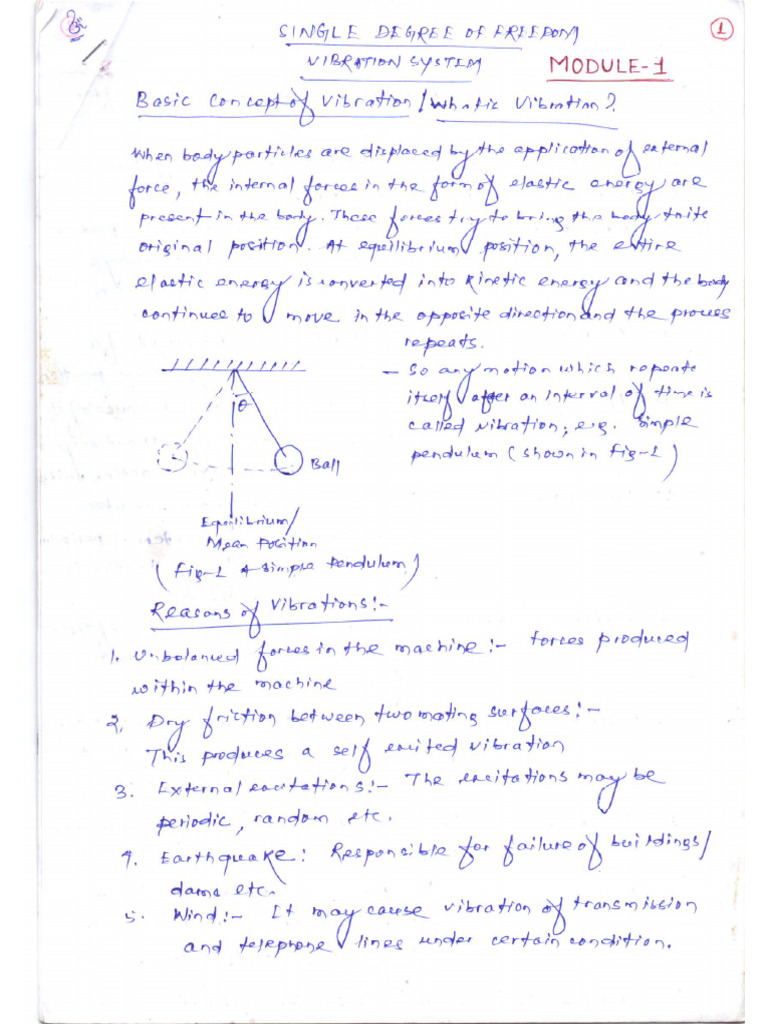 ॐ
1
SINGLE DEGREE OF FREEDOM
VIBRATION SYSTEM MODULE-1
Basic Concept of Vibration / What is Vibration?
When body particles are displaced by the application of external
force, the internal forces in the form of elastic energy are
present in the body. These forces try to bring the body to its
original position. At equilibrium position, the entire
elastic energy is converted into kinetic energy and the body
continues to move in the opposite direction and the process
repeats.
- So any motion which repeats
itself after an interval of time is
called vibration; e.g. simple
pendulum (shown in fig-1)
θ
Ball
Equilibrium/
Mean Position
(Fig-1 A simple Pendulum)
Reasons of Vibrations:-
1. Unbalanced forces in the machine:- forces produced
within the machine
2. Dry friction between two mating surfaces:-
This produces a self excited vibration
3. External excitations:- The excitations may be
periodic, random etc.
4. Earthquake: Responsible for failure of buildings/
dams etc.
5. Wind:- It may cause vibration of transmission
and telephone lines under certain condition.